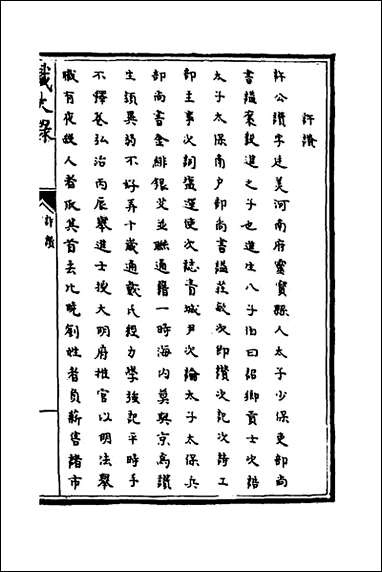 許讚
許公讚字廷美河南府靈寶縣人太子少保吏部尚
書謚襄毅進之子也進生八子伯曰詔鄉貢士次誥
太子太保南户部尚書謚莊敏次即讚次記次詩工
部主事次詞鹽運使次誌青城尹次論太子太保兵
部尚書金緋銀艾並聯通籍一時海内莫與京焉讚
生頭異弱不好弄十歲通戴氏投力學強記平時手
不擇卷弘治丙辰舉進士授大明府推官以明法舉
職有夜殺人者取其首去比曉劉姓者負薪售諸市
許讚